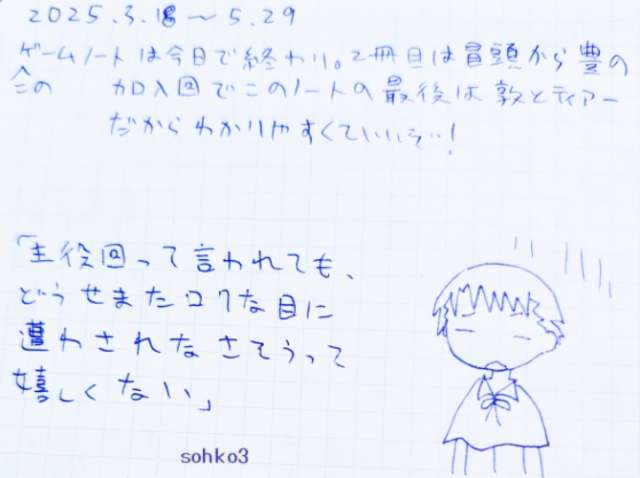 2025.3.18～5.29
ゲームノートは今日で終わり。2冊目は冒頭から豊の
この 加入回でこのノートの最後は敦とティアー
だからわかりやすくていいぞー!
「主役回って言われても、
どうせまたロクな目に
遭わされなさそうって
嬉しくない」
sohko3